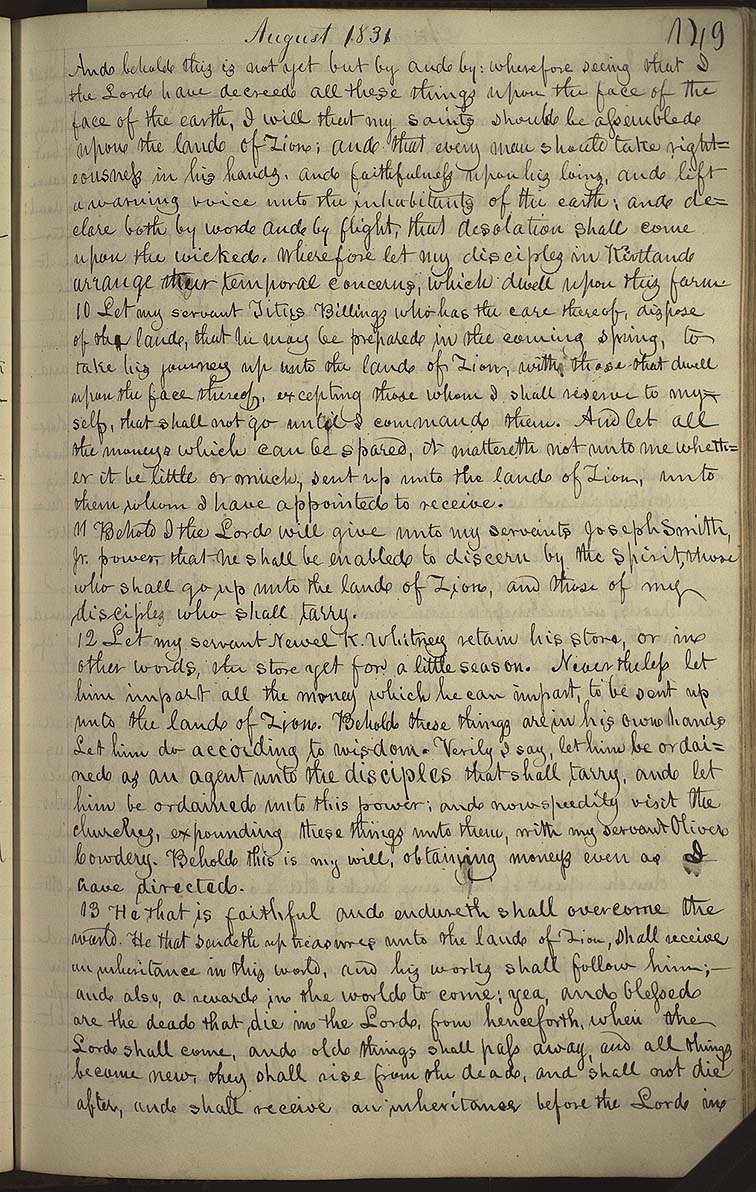 August 1831
149
And behold this is not yet but by and by: wherefore seeing that I
the Lord have decreed all these things upon the face of the
face of the earth, I will that my saints should be assembled
upon the land of Zion; and that every man should take right=
eousness in his hands, and faithfulness upon his loins, and lift
a warning voice unto the inhabitants of the earth; and de=
clare both by word and by flight, that desolation shall come
upon the wicked. Wherefore let my disciples in Kirtland
arrange their temporal concerns, which dwell upon this farm
10 Let my servant Titus Billings who has the care thereof, dispose
of the land, that he may be prepared in the coming spring, to
take his journey up unto the land of Zion, with those that dwell
upon the face thereof, excepting those whom I shall reserve to my=
self, that shall not go until I command them. And let all
the moneys which can be spared, it mattereth not unto me wheth=
er it be little or much, sent up unto the land of Zion, unto
them whom I have appointed to receive.
11 Behold I the Lord will give unto my servants Joseph Smith,
Jr. power, that he shall be enabled to discern by the Spirit, those
who shall go up unto the land of Zion, and those of my
disciples who shall tarry.
12 Let my servant Newel K. Whitney retain his store, or in
other words, the store yet for a little season. Nevertheless let
him impart all the money which he can impart, to be sent up
unto the land of Zion. Behold these things are in his own hands
Let him do according to wisdom. Verily I say, let him be ordai=
ned as an agent unto the disciples that shall tarry, and let
him be ordained unto this power; and now speedily visit the
churches, expounding these things unto them, with my servant Oliver
Cowdery. Behold this is my will, obtaining moneys even as I
have directed.
13 He that is faithful and endureth shall overcome the
world. He that sendeth up treasures unto the land of Zion, shall receive
an inheritance in this world, and his works shall follow him;—
and also, a reward in the world to come; yea, and blessed
are the dead that die in the Lord, from henceforth, when the
Lord shall come, and old things shall pass away, and all things
become new, they shall rise from the dead, and shall not die
after, and shall receive an inheritance before the Lord in